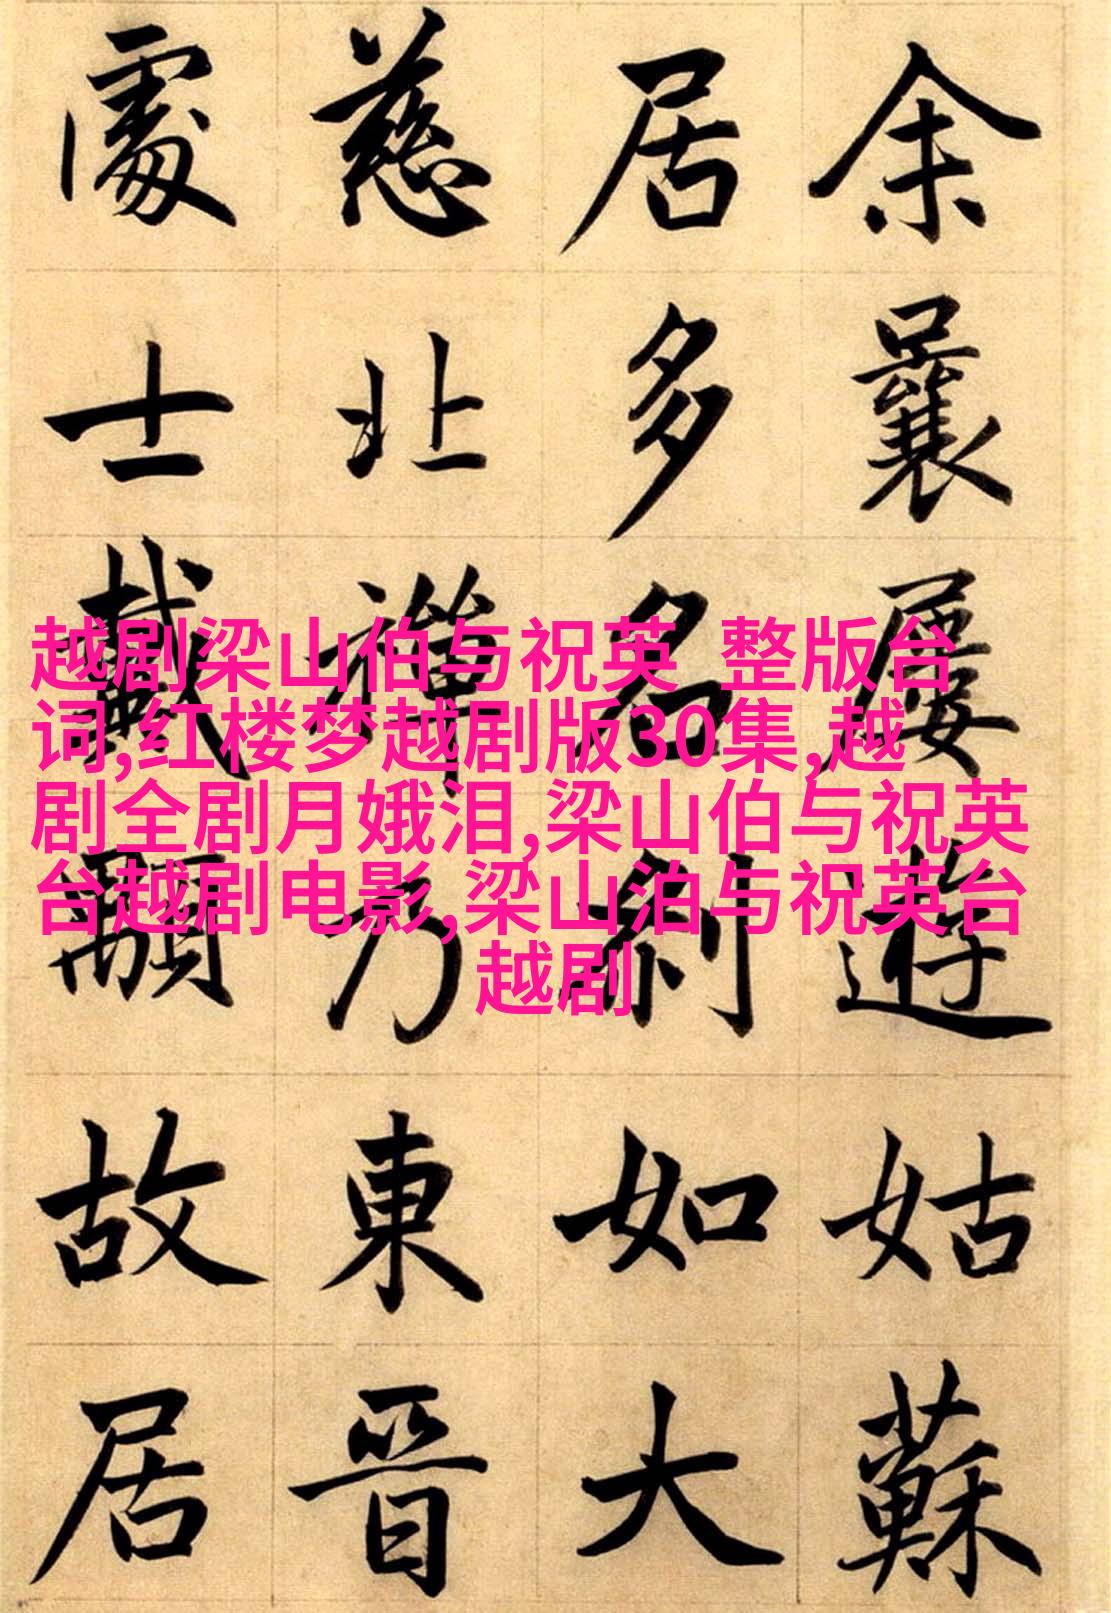 余曩屢遊姑蘇
居多名剎如大
慈北禪乃東晉
處士戴顒故居
越剧梁山伯与祝英 整版台
词,红楼梦越剧版30集,越
剧全剧月娥泪,梁山伯与祝英
台越剧电影,梁山泊与祝英台
越剧